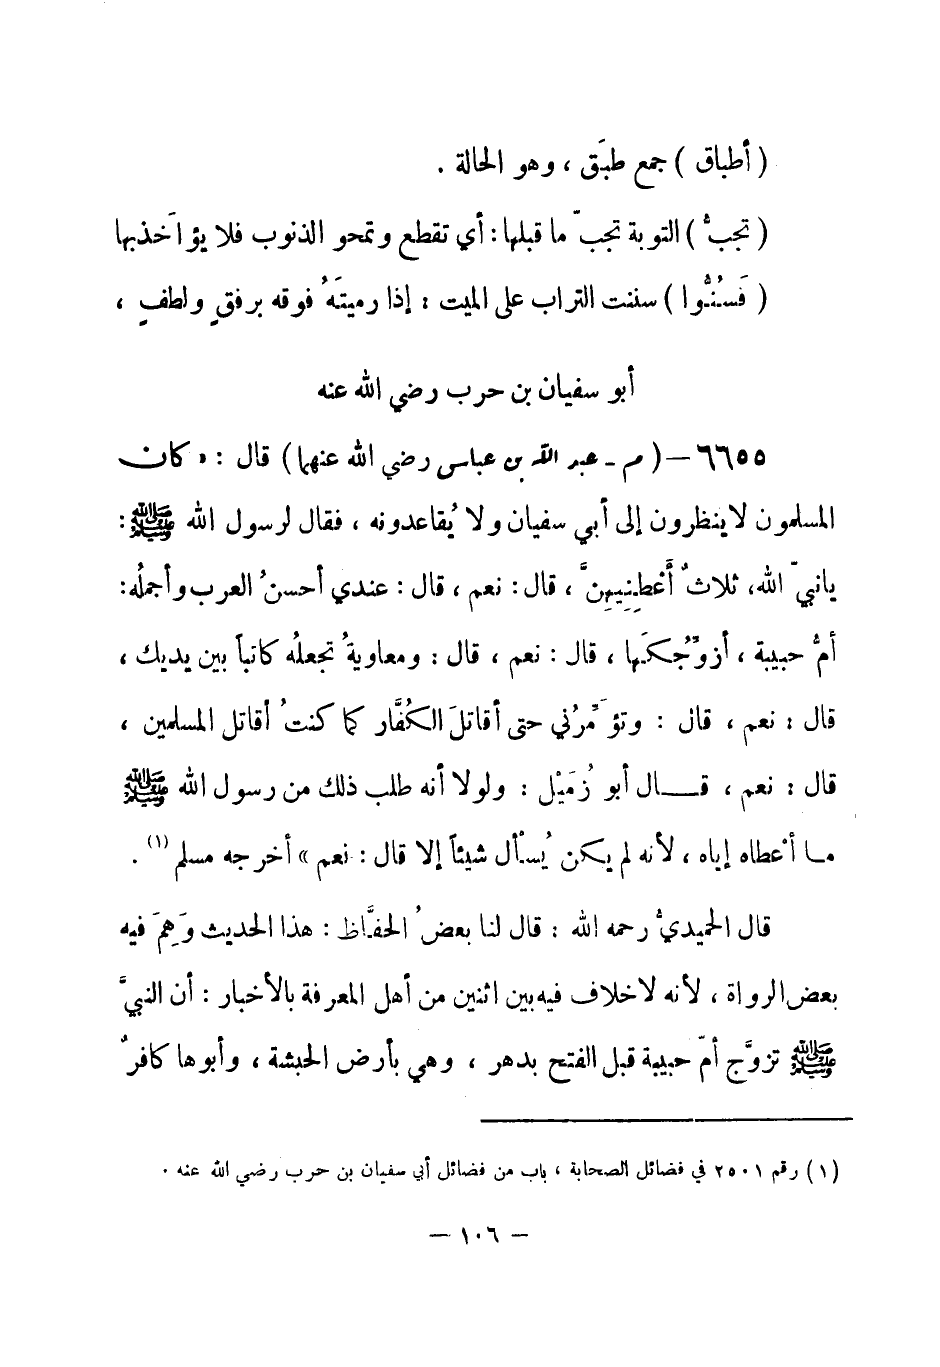 ( أطباق ) جمع طبَق ، وهو الحالة .
( تجبُّ ) التوبة تجبّ ما قبلها : أي تقطع وتمحو الذنوب فلا يؤاخذ بها
( فَسُنُّوا ) سننت التراب على الميت : إذا رميتَهُ فوقه برفقٍ ولطفٍ ،
أبو سفيان بن حرب رضي الله عنه
٦٦٥٥ – ( م - عبد الله بن عباس رضي الله عنهما ) قال : « كان
المسلمون لا ينظرون إلى أبي سفيان ولا يُقاعدونه ، فقال لرسول الله ﷺ :
يا نبيّ الله، ثلاثٌ أَعْطِنِيهِنَّ ، قال : نعم ، قال : عندي أحسنُ العرب وأجملُه :
أمُّ حبيبة ، أزوِّجُكَها ، قال : نعم ، قال : ومعاويةُ تجعلُه كاتباً بين يديك ،
قال : نعم ، قال : وتؤَمِّرُني حتى أقاتلَ الكُفَّار كما كنتُ أقاتل المسلمين ،
قال : نعم ، قـــال أبو زُمَيْل : ولولا أنه طلب ذلك من رسول الله ﷺ
مـا أعْطاه إياه ، لأنه لم يكن يُسْأل شيئاً إلا قال : نعم » أخرجه مسلم (١) .
قال الحميديُّ رحمه الله : قال لنا بعضُ الحفَّاظ : هذا الحديث وَهِمَ فيه
بعض الرواة ، لأنه لا خلاف فيه بين اثنين من أهل المعرفة بالأخبار : أن النبيَّ
ﷺ تزوَّج أمّ حبيبة قبل الفتح بدهر ، وهي بأرض الحبشة ، وأبوها كافرٌ
(١) رقم ٢٥٠١ في فضائل الصحابة ، باب من فضائل أبي سفيان بن حرب رضي الله عنه .
– ١٠٦ –